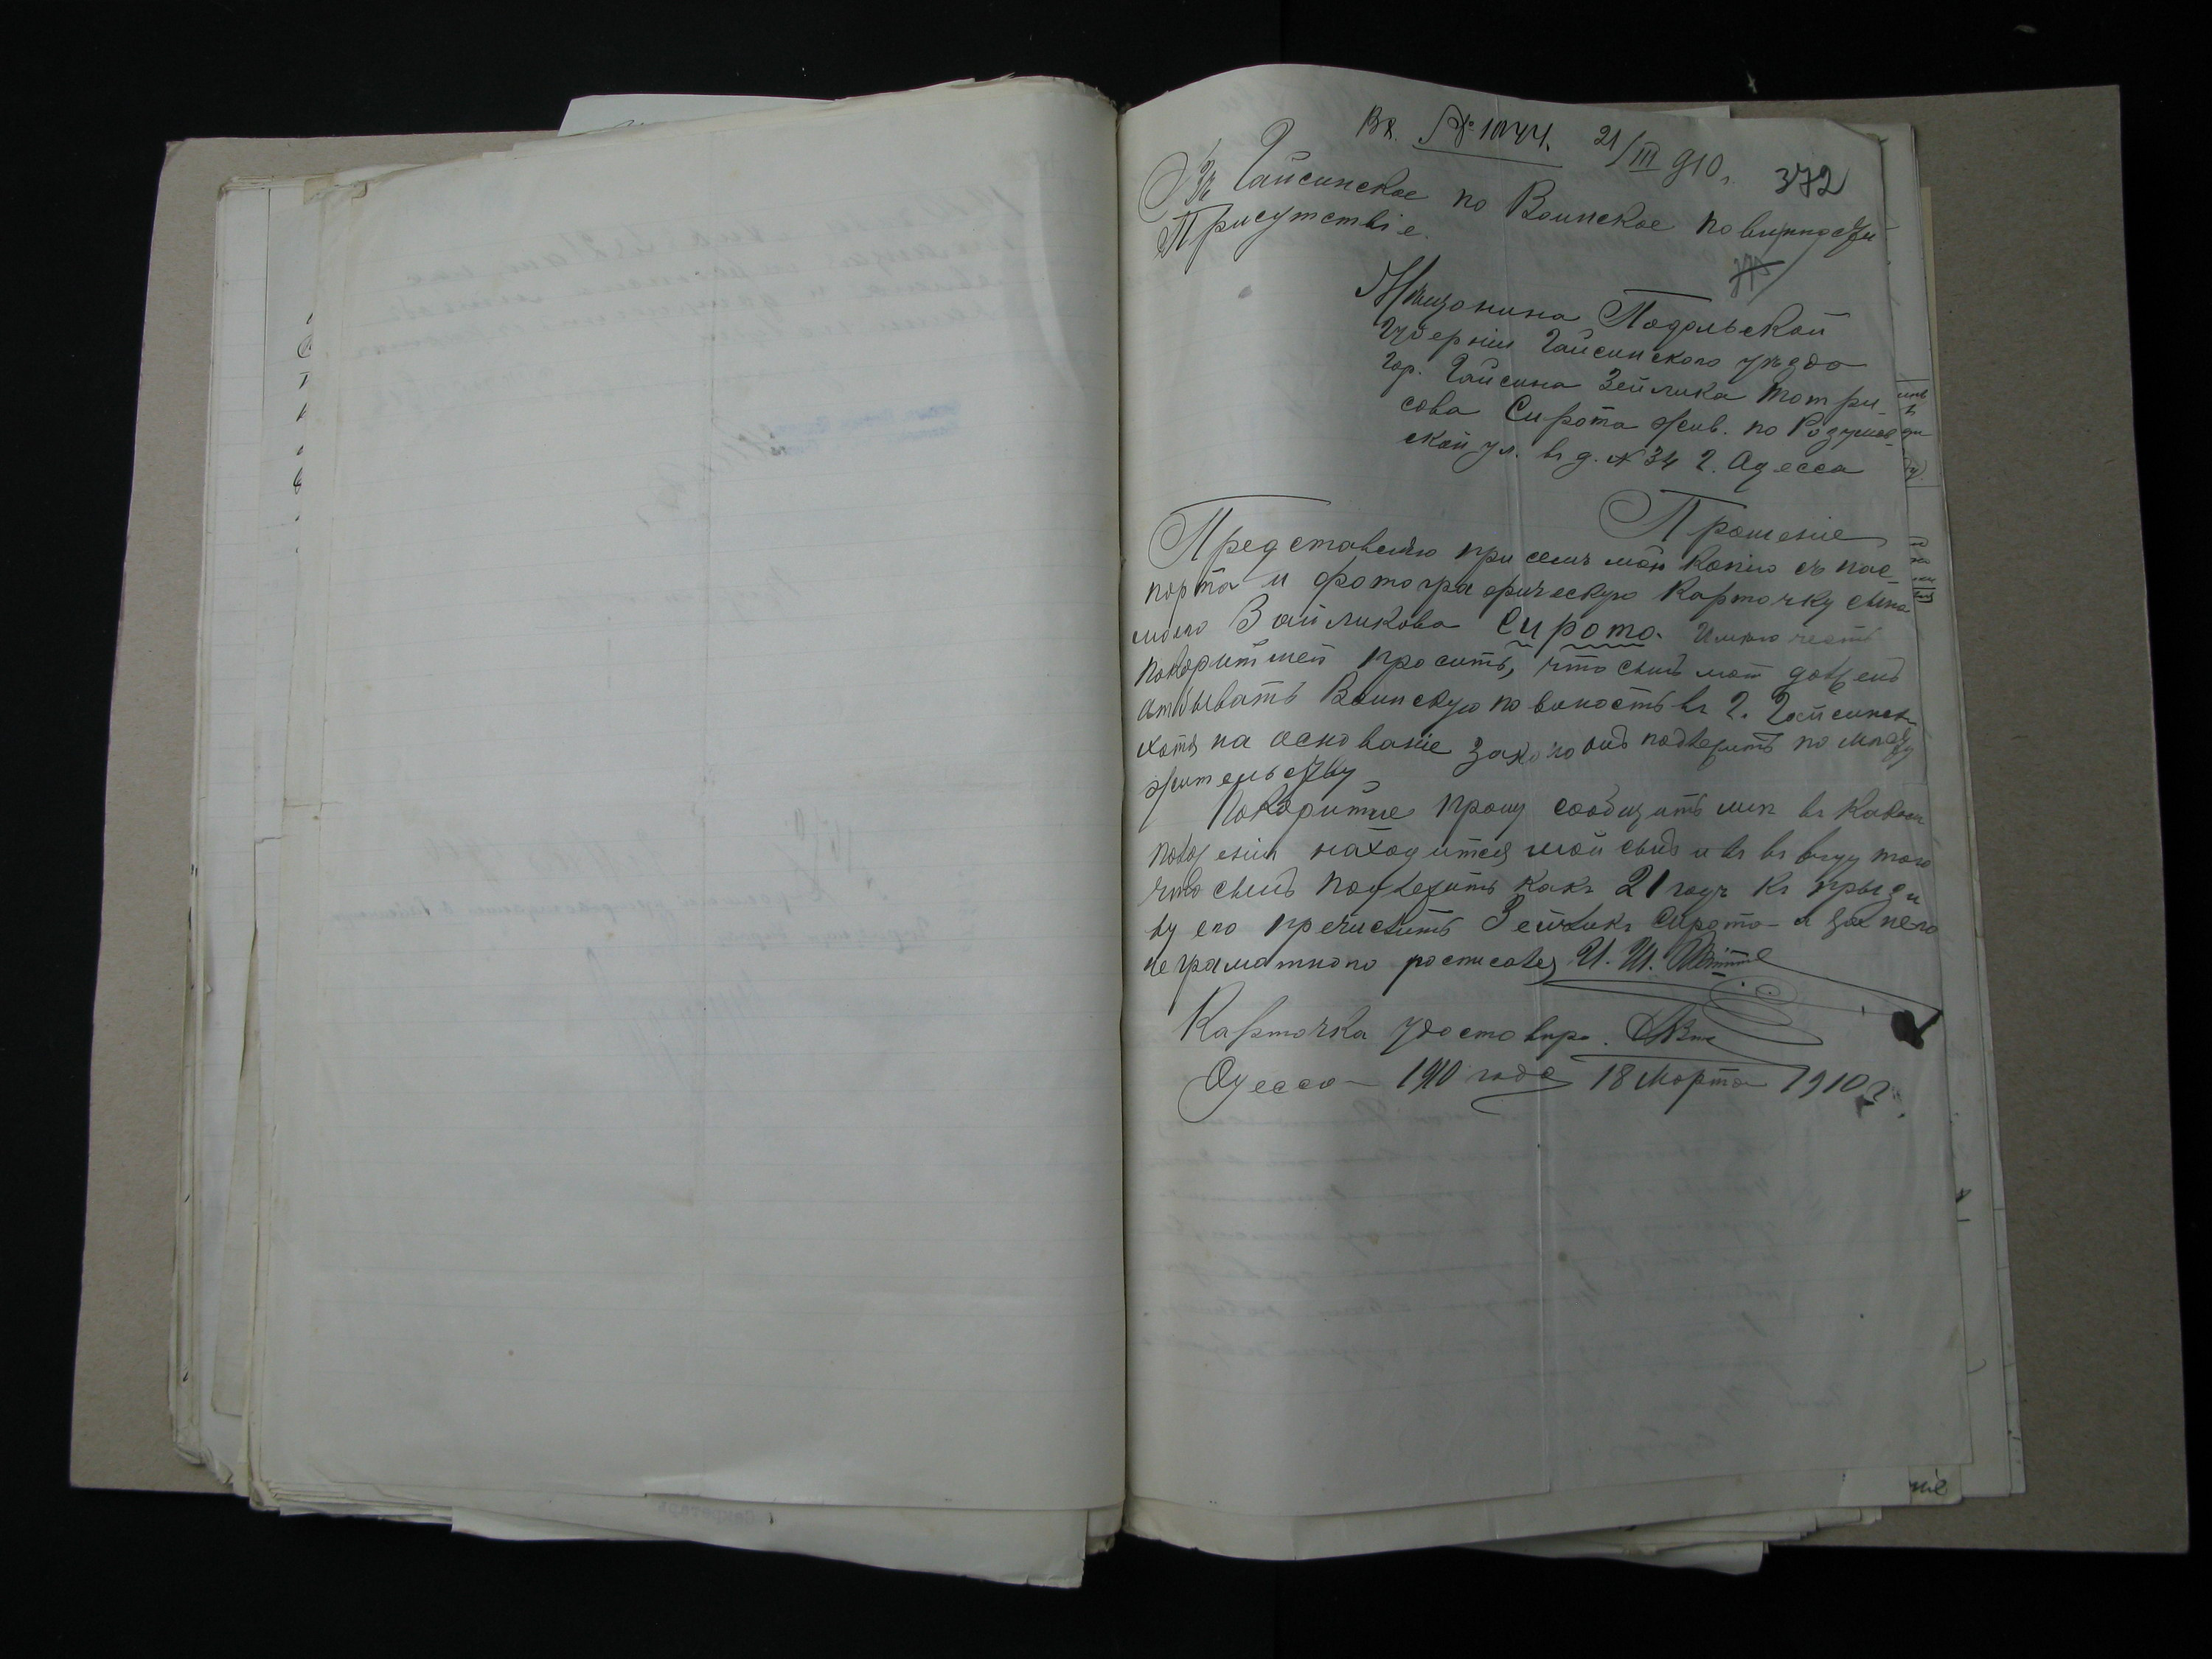 Вх. № 1044. 21/III 910 г. 372
Въ Гайсинское по Воинское повинности
Присутствіе.
Мѣщанина Подольской
Губерніи Гайсинского уѣзда
гор. Гайсина Зейлика Мотри-
сова Сирота жив. по Разумов-
ской ул. въ д. № 34 г. Одесса
Прошеніе
Представляю при семъ мою копію съ пас-
порта и фотографическую карточку сына
моего Зайликова Сирота. Имею честь
покорнѣйшей просить, что сынъ мой долженъ
атбывать Воинскую повиность въ г. Гайсинсъ
хотя на основаніе закона онъ подлежитъ по месту
жительству
Покорнѣйше прошу сообщить мнѣ въ каком
положеніи находится мой сынъ и въ виду того
что сынъ подлежитъ какъ 21 годъ къ призи
ву его причислить Зейликъ Сирота а за него
неграмотного росписался И. Ш.
Карточка удостовѣр.
Одесса 1910 года 18 Марта 1910 г.